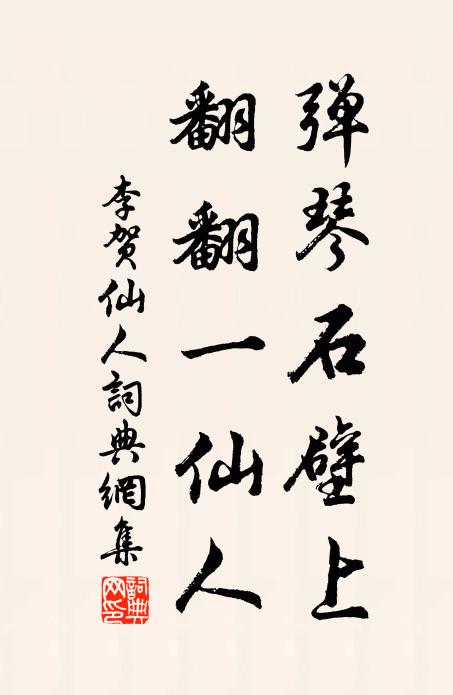 弹琴石壁上
翻翻一仙人
李贺仙人詞典網集
詞典网印